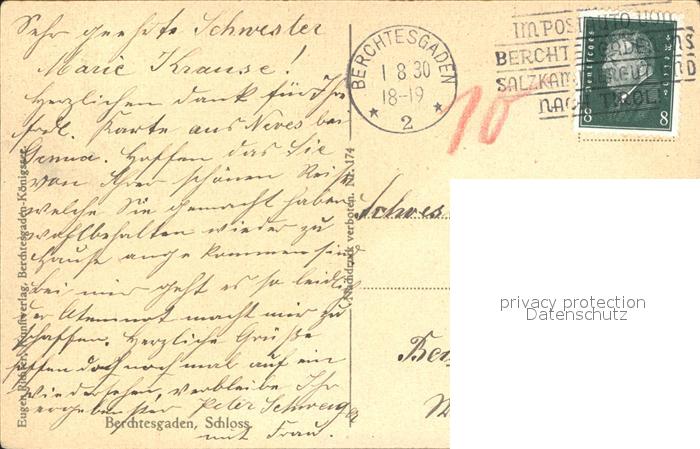 Sehr geehrte Schwester
Marie Krause!
Herzlichen Dank für Ihr
frdl. Karte aus Neves bei
Genua. Hoffen das Sie
von Ihrer schönen Reise
welche Sie gemacht haben
wohlbehalten wieder zu
Hause angekommen sind
Bei mir geht es so leidlich
der Atemnot macht mir zu
schaffen. Herzliche Grüße
hoffen doch noch mal auf ein
Wiedersehen, verbleibe Ihr
ergebenster Peter
mit Frau.
Eugen Richter, Kunstverlag, Berchtesgaden-Königssee.
Berchtesgaden, Schloss.
Nachdruck verboten. Nr. 174
BERCHTESGADEN
1 8 30
18-19
2
10
IM POSTAUTO VON
BERCHTESGADEN INS
SALZKAMMERGUT UND
NACH TIROL
Deutsches Reich
8 8
Schwes
Ber
privacy protection
Datenschutz